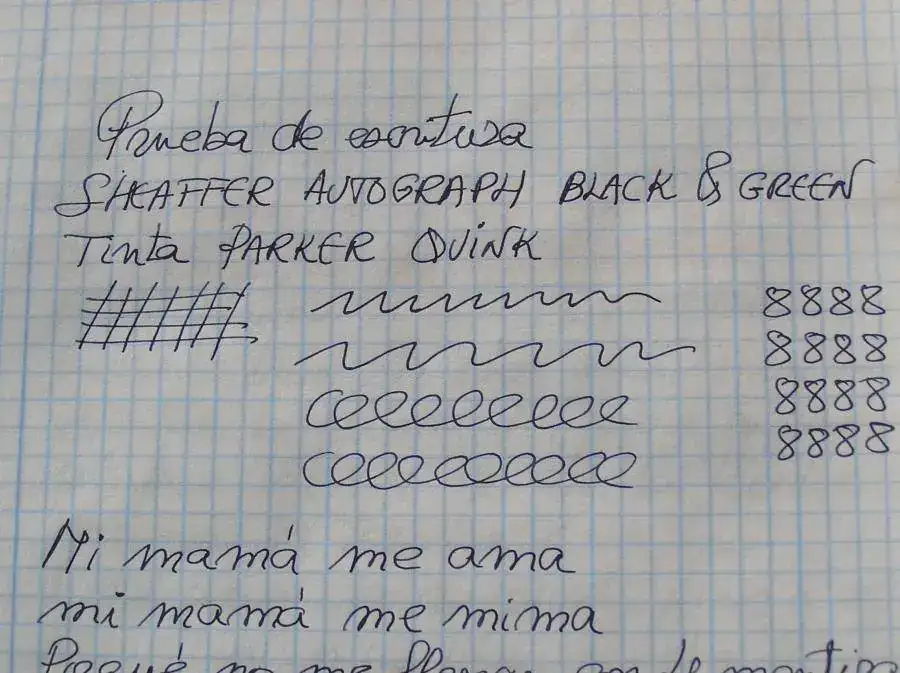 Prueba de escritura
SHEAFFER AUTOGRAPH BLACK & GREEN
Tinta PARKER QUINK
8888
8888
8888
8888
Mi mamá me ama
mi mamá me mima
no me